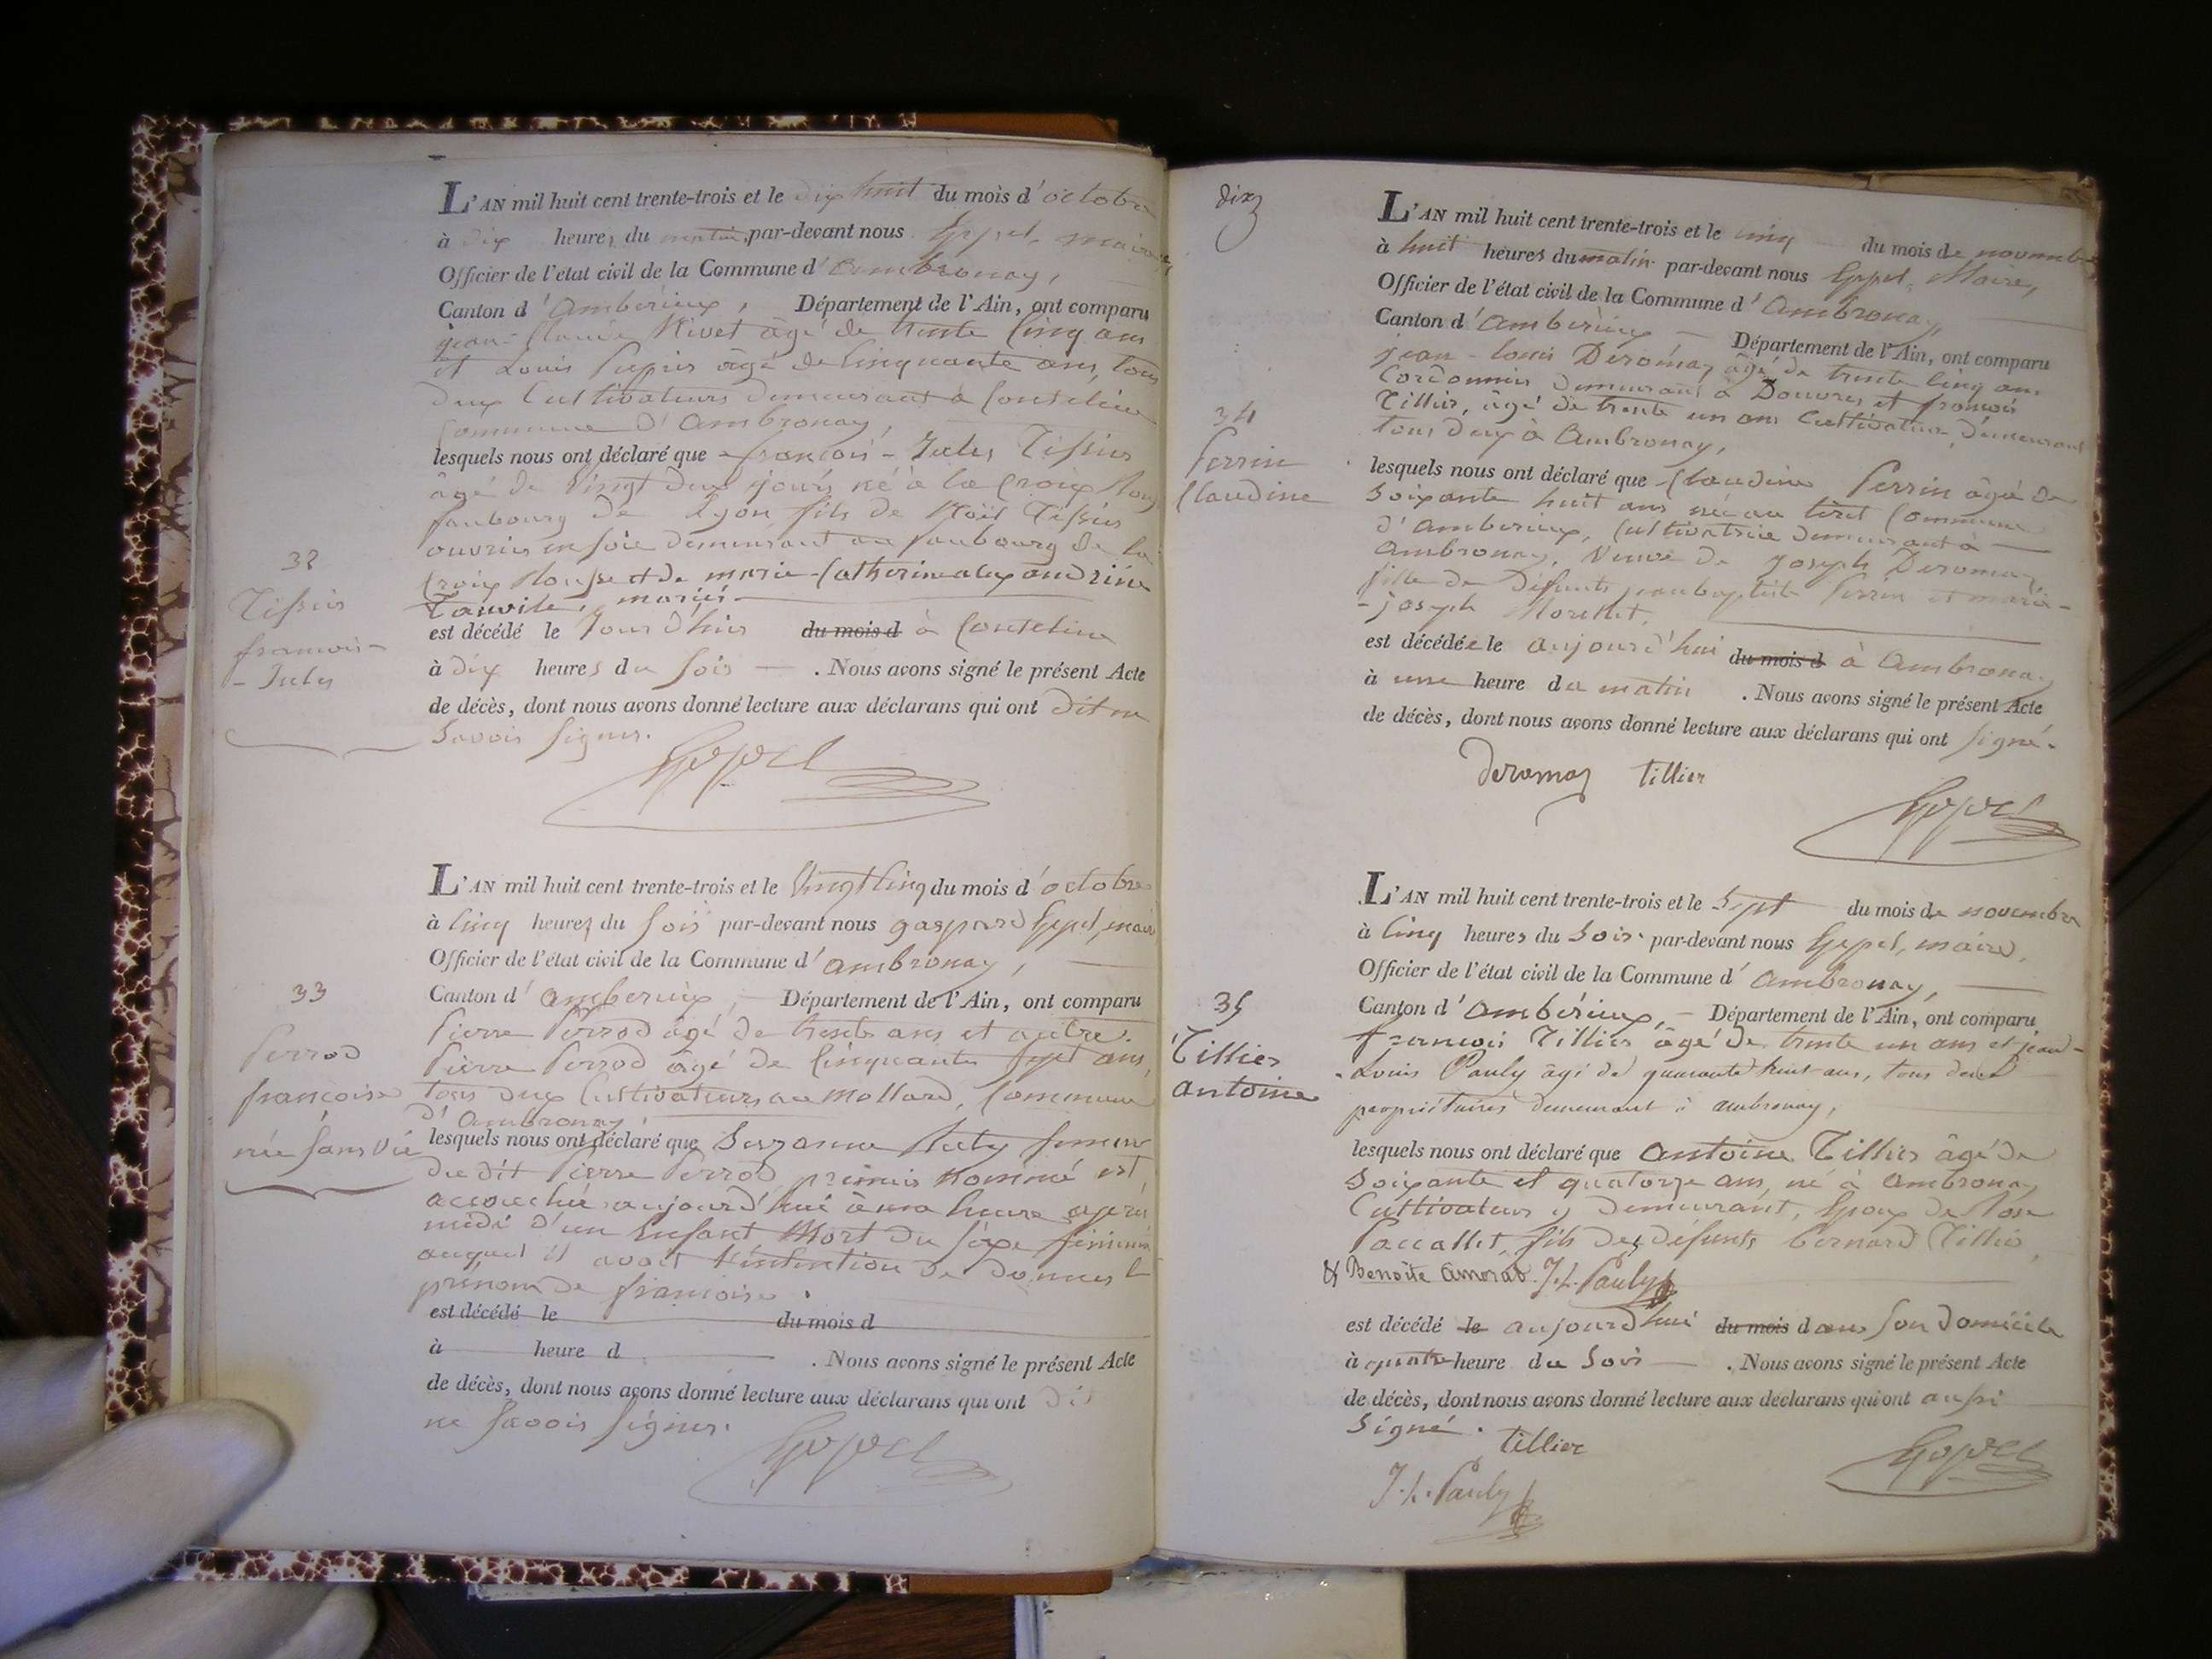 L'AN mil huit cent trente-trois et le dix huit du mois d'octobre
à dix heures du matin, par-devant nous Eppel, maire,
Officier de l'état civil de la Commune d'Ambronay,
Canton d'Ambérieux, Département de l'Ain, ont comparu
jean-Claude Rivet âgé de trente Cinq ans
et Louis âgé de Cinquante ans, tous
deux Cultivateurs demeurant à
Commune d'Ambronay,
lesquels nous ont déclaré que françois-Jules Tissier
âgé de Vingt deux jours né à la Croix Rousse
faubourg de Lyon fils de Noël Tissier
ouvrier en soie demeurant au faubourg de la
Croix Rousse et de marie-Catherine alexandrine
mariés
est décédé le Jour d'hier du mois d à
à dix heures du soir . Nous avons signé le présent Acte
de décès, dont nous avons donné lecture aux déclarans qui ont dit ne
Savoir Signer.
Eppel
32
Tissier
françois-
-Jules
L'AN mil huit cent trente-trois et le Vingt Cinq du mois d'octobre
à Cinq heures du soir par-devant nous gaspard Eppel, maire
Officier de l'état civil de la Commune d'ambronay,
Canton d'amberieux, Département de l'Ain, ont comparu
Pierre Perrod âgé de trente ans et autre
Pierre Perrod âgé de Cinquante Sept ans,
tous deux Cultivateurs au Mollard, Commune
d'Ambronay
lesquels nous ont déclaré que Suzanne femme
du dit Pierre Perrod premier nommé est
accouchée aujourd'hui à une heure après
midi d'un Enfant Mort du sexe féminin
auquel il avait l'intention de donner le
prénom de françoise.
est décédé le du mois d
à heure d . Nous avons signé le présent Acte
de décès, dont nous avons donné lecture aux déclarans qui ont dit
ne Savoir signer.
Eppel
33
Perrod
françoise
née sans vie
dix
L'AN mil huit cent trente-trois et le cinq du mois de novembre
à huit heures du matin par-devant nous Eppel, Maire,
Officier de l'état civil de la Commune d'Ambronay,
Canton d'Ambérieux Département de l'Ain, ont comparu
jean-louis Deromaz âgé de trente Cinq ans
Cordonnier demeurant à Douvres et françois
Tillier, âgé de trente un ans Cultivateur, demeurant
tous deux à Ambronay,
lesquels nous ont déclaré que Claudine Perrin âgée de
Soixante huit ans née au tiret Commune
d'Amberieux, Cultivatrice demeurant à
Ambronay, Veuve de Joseph Deromaz,
fille de Défunts jean baptiste Perrin et marie-
-joseph Morellet,
est décédée le aujourd'hui du mois d à Ambronay
à une heure du matin . Nous avons signé le présent Acte
de décès, dont nous avons donné lecture aux déclarans qui ont signé.
deromaz tillier
Eppel
34
Perrin
Claudine
L'AN mil huit cent trente-trois et le Sept du mois de novembre
à Cinq heures du Soir par-devant nous Eppel, maire,
Officier de l'état civil de la Commune d'Ambronay,
Canton d'Ambérieux, Département de l'Ain, ont comparu
françois Tillier âgé de trente un ans et jean-
-Louis Pauly âgé de quarante huit ans, tous deux
propriétaires demeurant à ambronay,
lesquels nous ont déclaré que Antoine Tillier âgé de
Soixante et quatorze ans, né à Ambronay
Cultivateur y demeurant, Epoux de Rose
Paccallet, fils des défunts bernard Tillier,
& Benoite Amorad. J. L. Pauly
est décédé le aujourd'hui du mois dans son domicile
à quatre heure du Soir . Nous avons signé le présent Acte
de décès, dont nous avons donné lecture aux déclarans qui ont aussi
Signé. tillier
Eppel
J. L. Pauly
35
Tillier
antoine